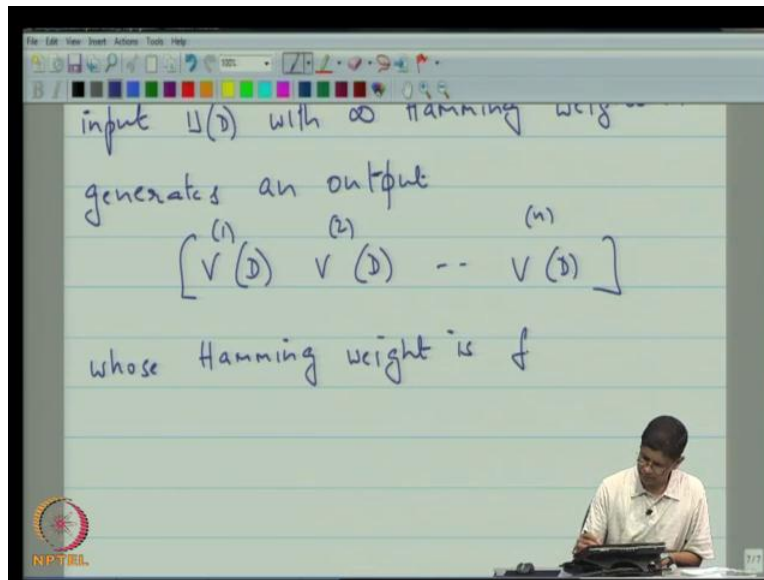 File Edit View Insert Actions Tools Help
100%
B I
input U(D) with ∞ Hamming
generates an output
(1) (2) (n)
[ V (D) V (D) -- V (D) ]
whose Hamming weight is f
NPTEL
7/7